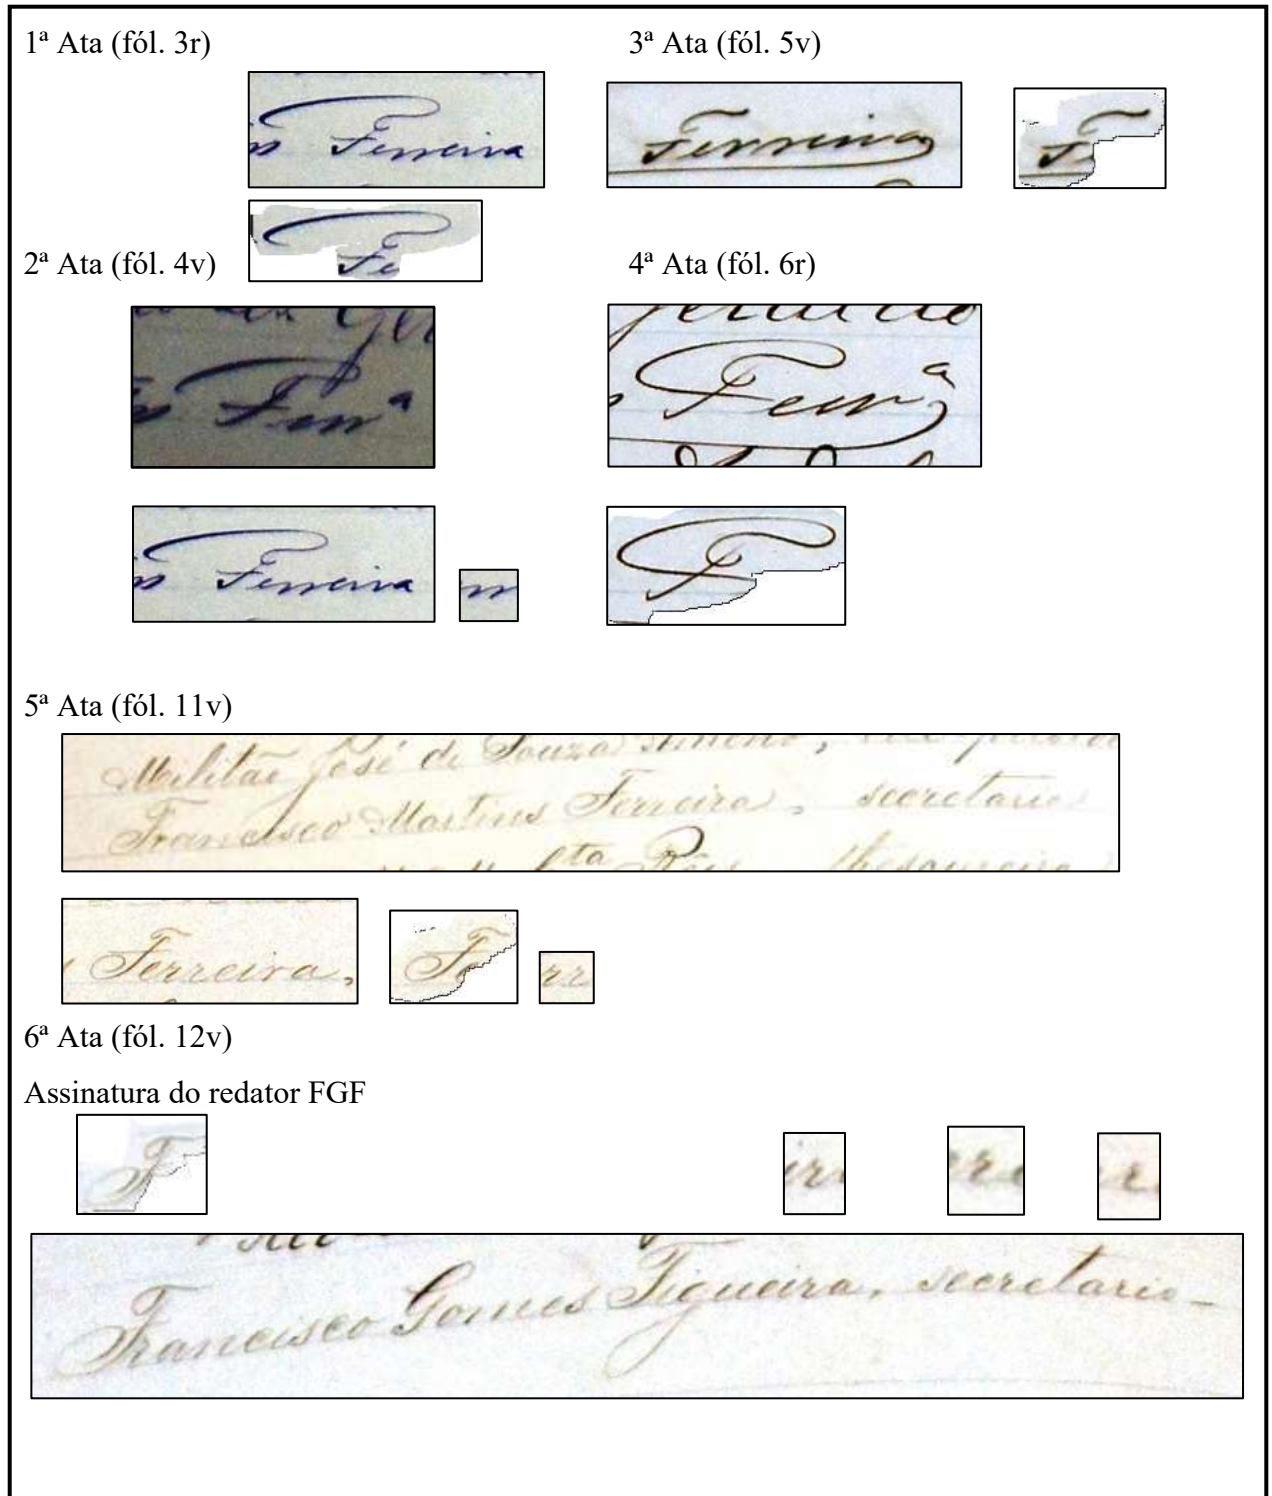 1ª Ata (fól. 3r)
Ferreira
Fe
2ª Ata (fól. 4v)
Ferrª
Ferreira
rr
3ª Ata (fól. 5v)
Ferreira
F
4ª Ata (fól. 6r)
Geraldo
Ferrª
F
5ª Ata (fól. 11v)
Militão José de Souza
Francisco Martins Ferreira, secretario
Ferreira,
F
rr
6ª Ata (fól. 12v)
Assinatura do redator FGF
F
ir
er
r
Francisco Gomes Figueira, secretario